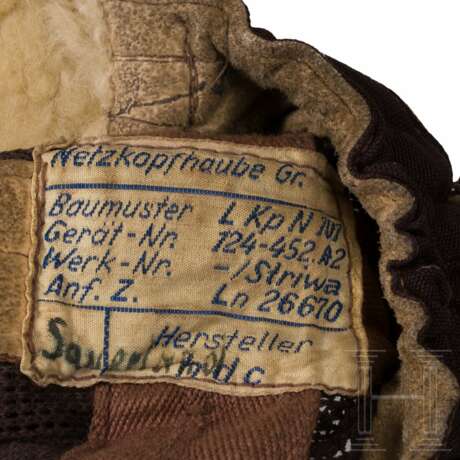 Netzkopfhaube Gr.
Baumuster L Kp N 101
Gerät-Nr. 124-452.A2
Werk-Nr. -/Striwa
Anf. Z. Ln 26670
Hersteller